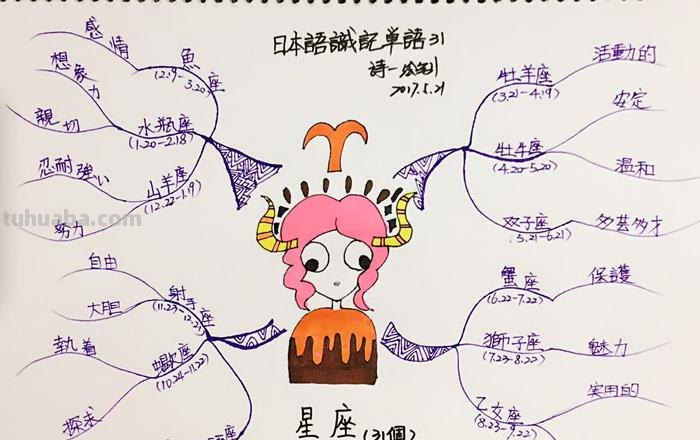 日本語識記単語31
2017.5.21
感情
魚座
(2.19-3.20)
想象力
水瓶座
(1.20-2.18)
親切
忍耐強い
山羊座
(12.22-1.19)
努力
tuhuaba.com
自由
射手座
(11.23-12.21)
大胆
執着
蠍座
(10.24-11.22)
探求
牡羊座
(3.21-4.19)
活動的
安定
牡牛座
(4.20-5.20)
温和
双子座
(5.21-6.21)
多芸多才
蟹座
(6.22-7.22)
保護
獅子座
(7.23-8.22)
魅力
乙女座
(8.23-9.22)
実用的
星座 (31個)